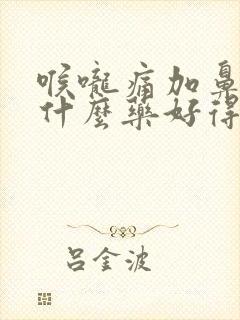 喉嚨痛加鼻
什麼藥好得
呂金波